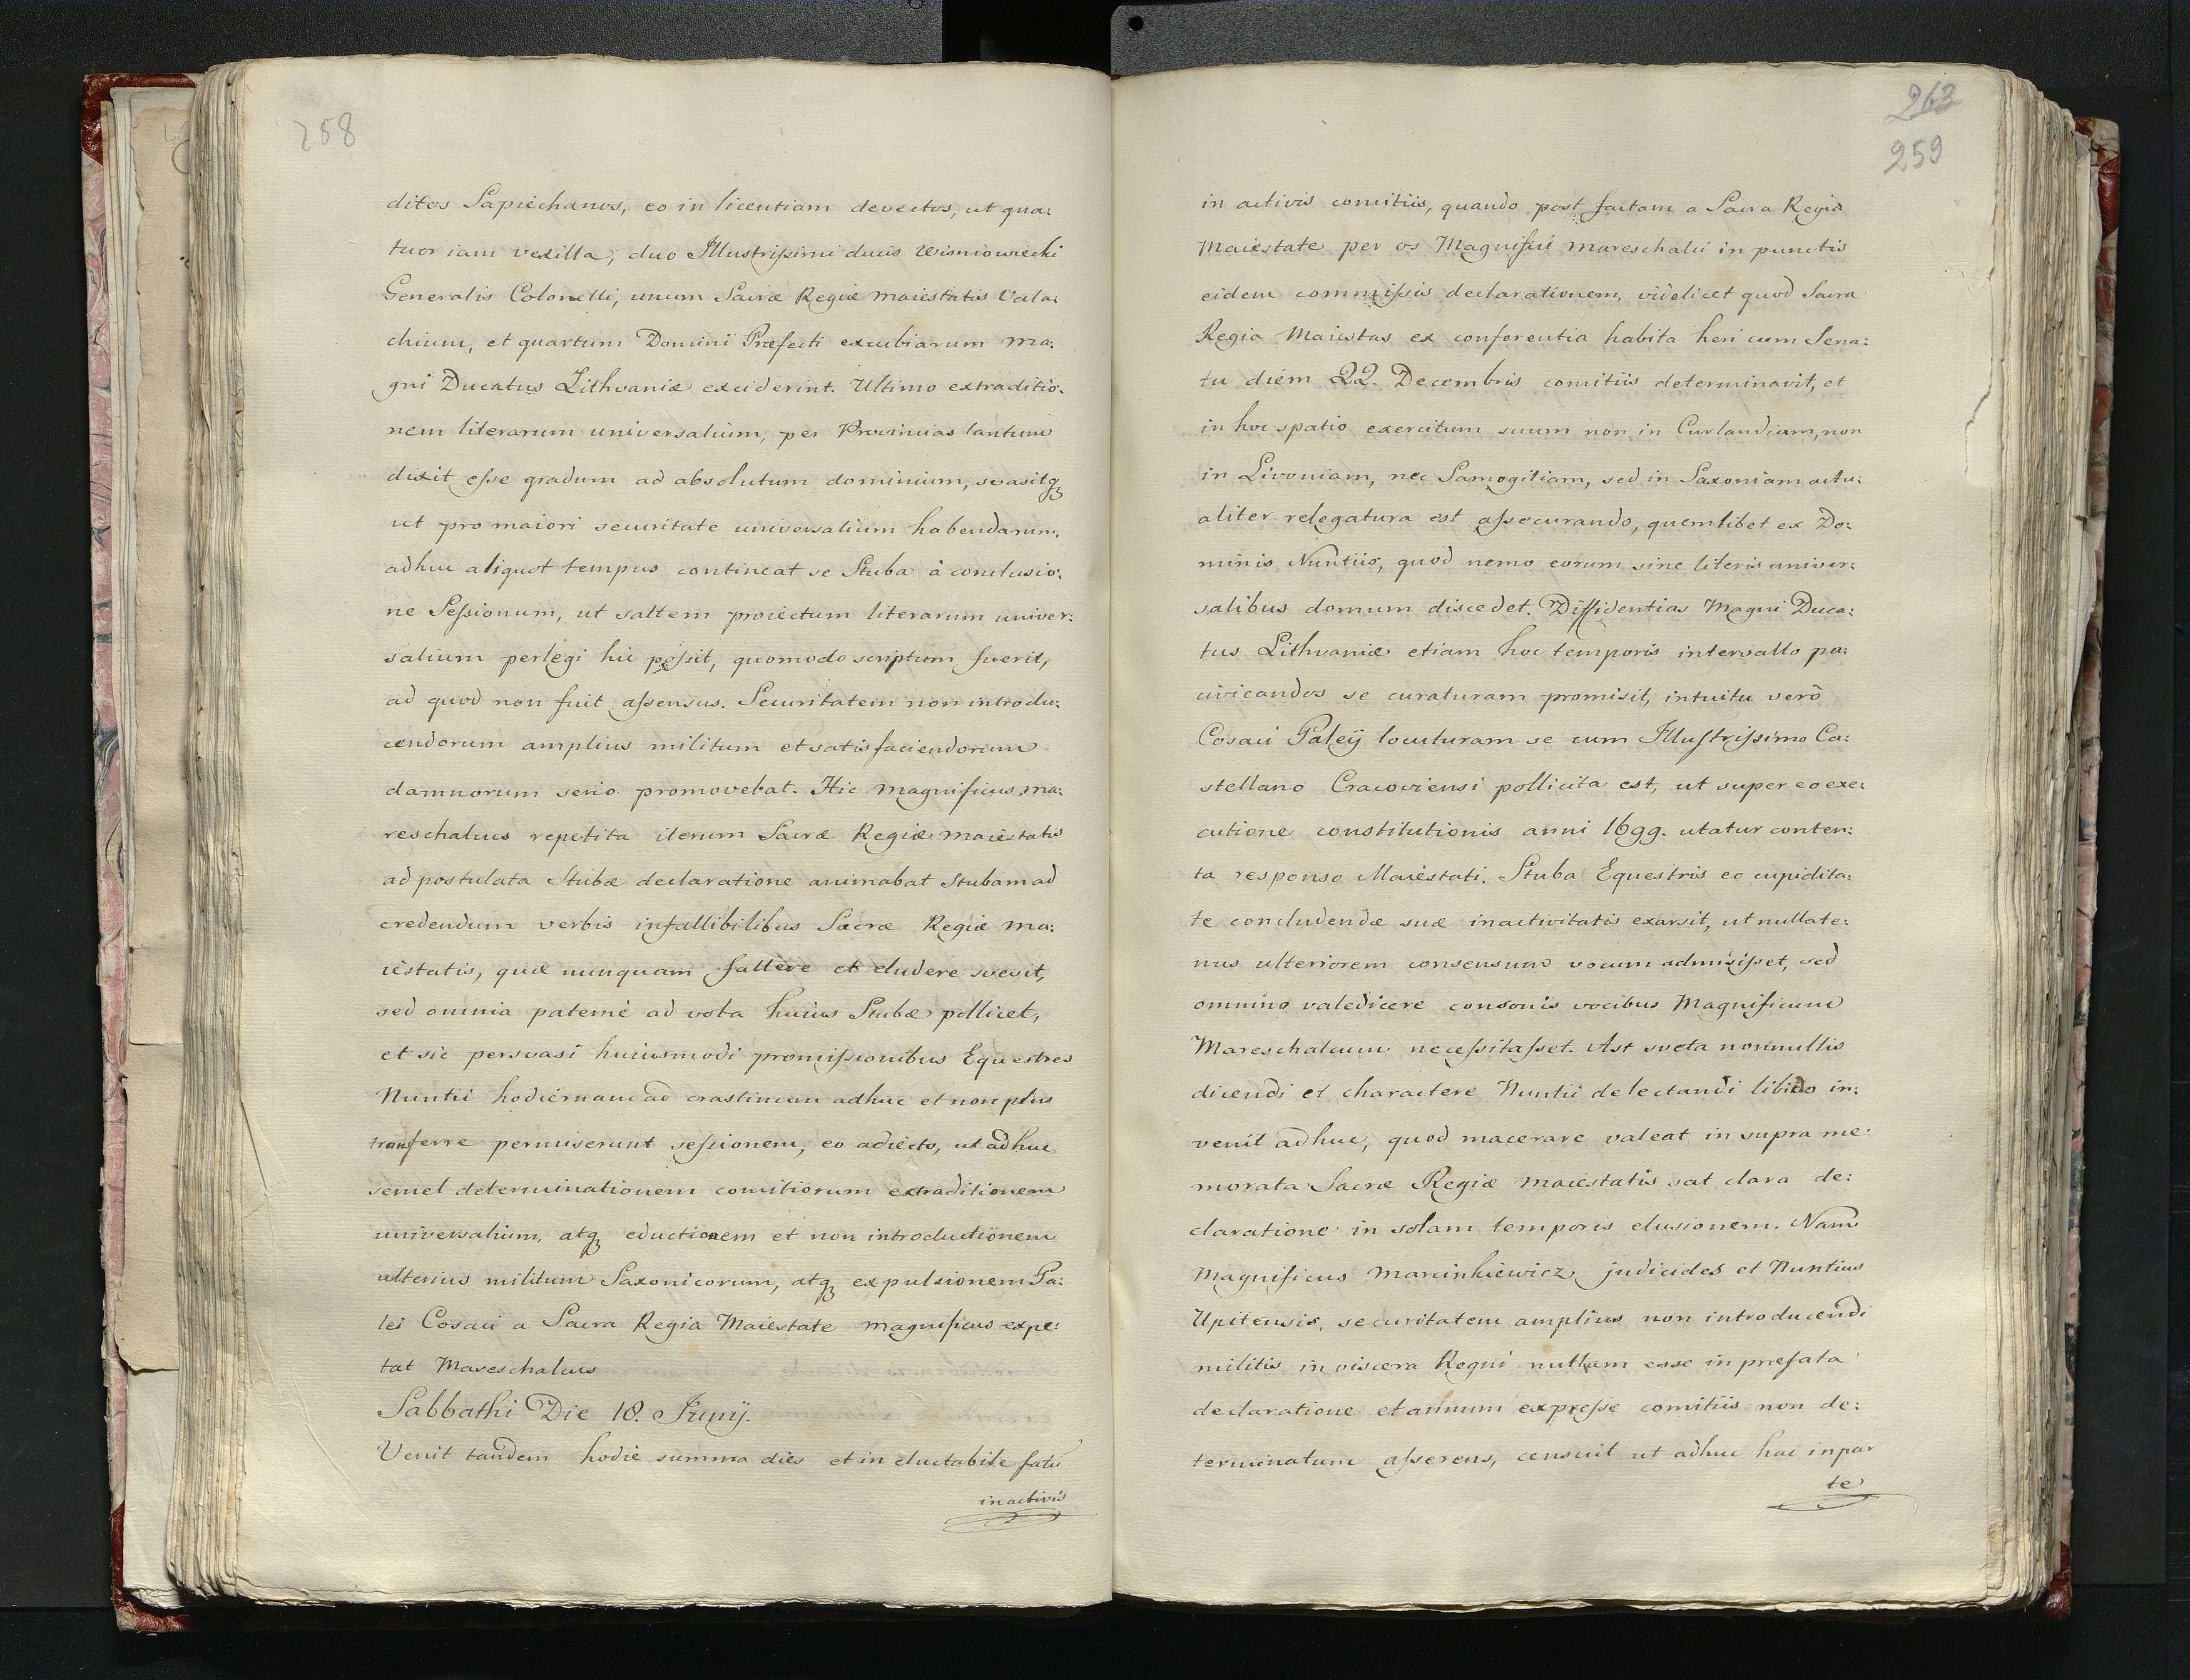 258
ditos Sapiechanos, eo in licentiam devectos, ut qua:
tuor iam vexilla, duo Illustrissimi ducis Wisniowiecki
Generalis Colonelli, unum Sacræ Regiæ maiestatis Vala:
chium, et quartum Domini Præfecti excubiarum Ma:
gni Ducatus Lithvaniæ exciderint. Ultimo extraditio:
nem literarum universalium, per Provincias tantum
dixit esse gradum ad absolutum dominium, svasitqꝫ
ut pro maiori securitate universalium habendarum,
adhuc aliquot tempus contineat se Stuba à conclusio:
ne Sessionum, ut saltem proiectum literarum univer:
salium perlegi hic possit, quomodo scriptum fuerit,
ad quod non fuit assensus. Securitatem non introdu:
cendorum amplius militum et satisfaciendorum
damnorum serio promovebat. Hic magnificus ma:
reschalcus repetita iterum Sacræ Regiæ maiestatis
ad postulata Stubæ declaratione animabat Stubam ad
credendum verbis infallibilibus Sacræ Regiæ ma:
iestatis, quæ nunquam fallere et eludere svevit,
sed omnia paterne ad vota huius Stubæ pollicet,
et sic persvasi huiusmodi promissionibus Equestres
Nuntii hodiernam ad crastinum adhuc et non plus
transferre permiserunt sessionem, eo adiecto, ut adhuc
semel determinationem comitiorum extraditionem
universalium, atqꝫ eductionem et non introductionem
ulterius militum Saxonicorum, atqꝫ expulsionem Pa:
lei Cosaci a Sacra Regia Maiestate magnificus expe:
tat Mareschalcus
Sabbathi Die 18. Junÿ.
Venit tandem hodie summa dies et in eluctabile fatū
in activis
263
259
in activis comitiis, quando post factam a Sacra Regia
Maiestate per os Magnifici Mareschalci in punctis
eidem commissis declarationem, videlicet quod Sacra
Regia Maiestas ex conferentia habita heri cum Sena:
tu diem 22. Decembris comitiis determinavit, et
in hoc spatio exercitum suum non in Curlandiam, non
in Livoniam, nec Samogitiam, sed in Saxoniam actu:
aliter relegatura est assecurando, quemlibet ex Do:
minis Nuntiis, quod nemo eorum sine literis univer:
salibus domum discedet. Diffidentias Magni Duca:
tus Lithvaniæ etiam hoc temporis intervallo pa:
civicandos se curaturam promisit, intuitu verò
Cosaci Paleÿ locuturam se cum Illustrissimo Ca:
stellano Cracoviensi pollicita est, ut super eo exe:
cutione constitutionis anni 1699. utatur conten:
ta responso Maiestati. Stuba Equestris eo cupidita:
te concludendæ suæ inactivitatis exarsit, ut nullate:
nus ulteriorem consensum vocum admisisset, sed
omnino valedicere consonis vocibus Magnificum
Mareschalcum necessitasset. Ast sveta nonnullis
dicendi et charactere Nuntii delectandi libido in:
venit adhuc, quod macerare valeat in supra me:
morata Sacræ Regiæ maiestatis sat clara de:
claratione in solam temporis elusionem. Nam
Magnificus Marcinkiewicz judicides et Nuntius
Upitensis, securitatem amplius non introducendi
militis in viscera Regni nullam esse in præfata
declaratione et annum expresse comitiis non de:
terminatum asserens, censuit ut adhuc hac in par
te